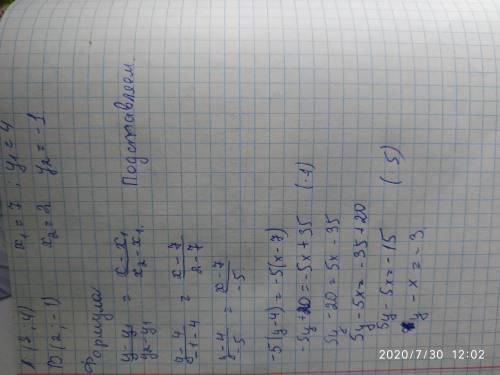 A (7; 4)    x₁ = 7 ; y₁ = 4
B (2; -1)    x₂ = 2    y₂ = -1
Формула
(y - y₁)/(y₂ - y₁) = (x - x₁)/(x₂ - x₁)    Подставляем
(y - 4)/(-1 - 4) = (x - 7)/(2 - 7)
(y - 4)/(-5) = (x - 7)/(-5)
-5(y - 4) = -5(x - 7)
-5y + 20 = -5x + 35    (-1)
5y - 20 = 5x - 35
5y - 5x = -35 + 20
5y - 5x = -15    (5)
y - x = -3
2020/7/30 12:02